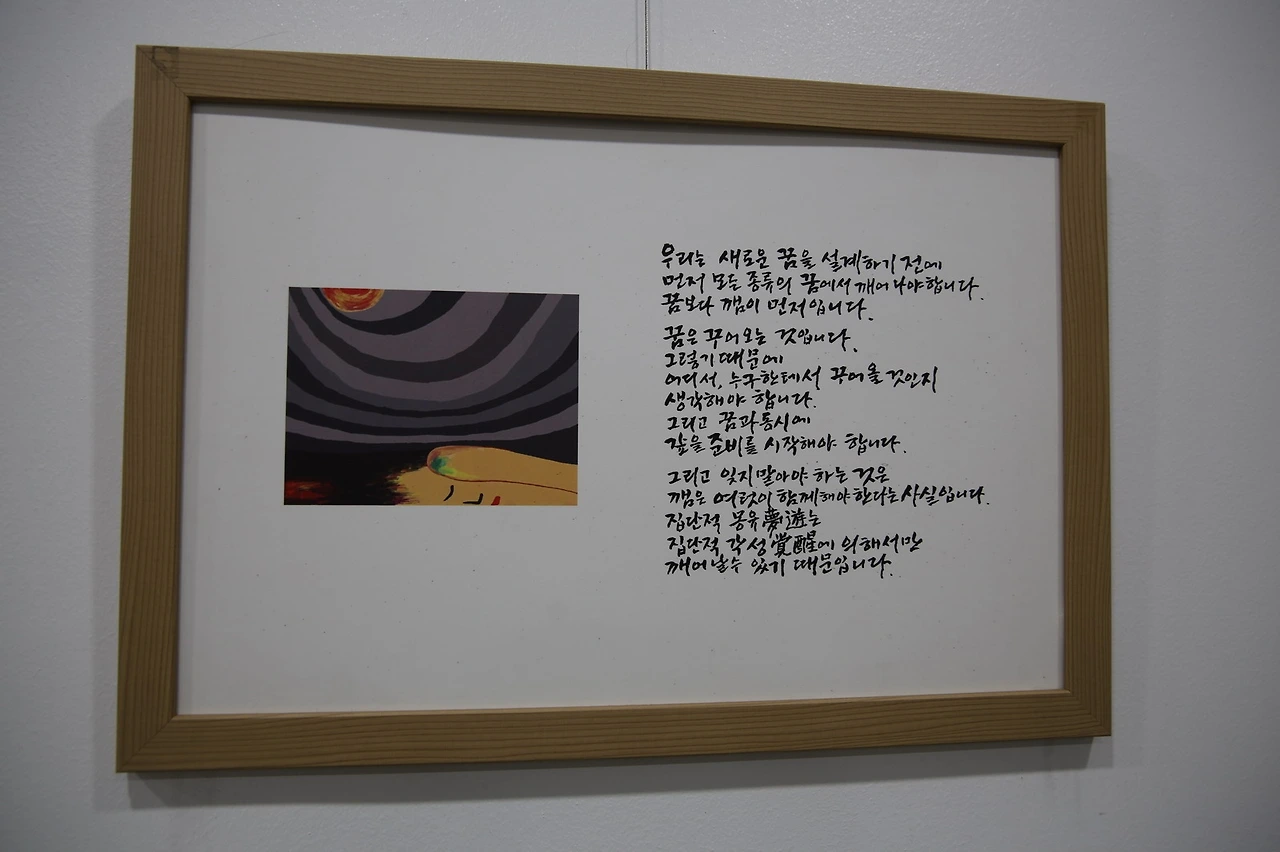 우리는 새로운 꿈을 설계하기 전에
먼저 모든 종류의 꿈에서 깨어나야합니다.
꿈보다 깸이 먼저입니다.
꿈은 꾸어오는 것입니다.
그렇기 때문에
어디서, 누구한테서 꾸어올 것인지
생각해야 합니다.
그리고 꿈과 동시에
갚을 준비를 시작해야 합니다.
그리고 잊지말아야 하는 것은
깸은 여럿이 함께해야한다는 사실입니다.
집단적 몽유夢遊는
집단적 각성覺醒에 의해서만
깨어날 수 있기 때문입니다.